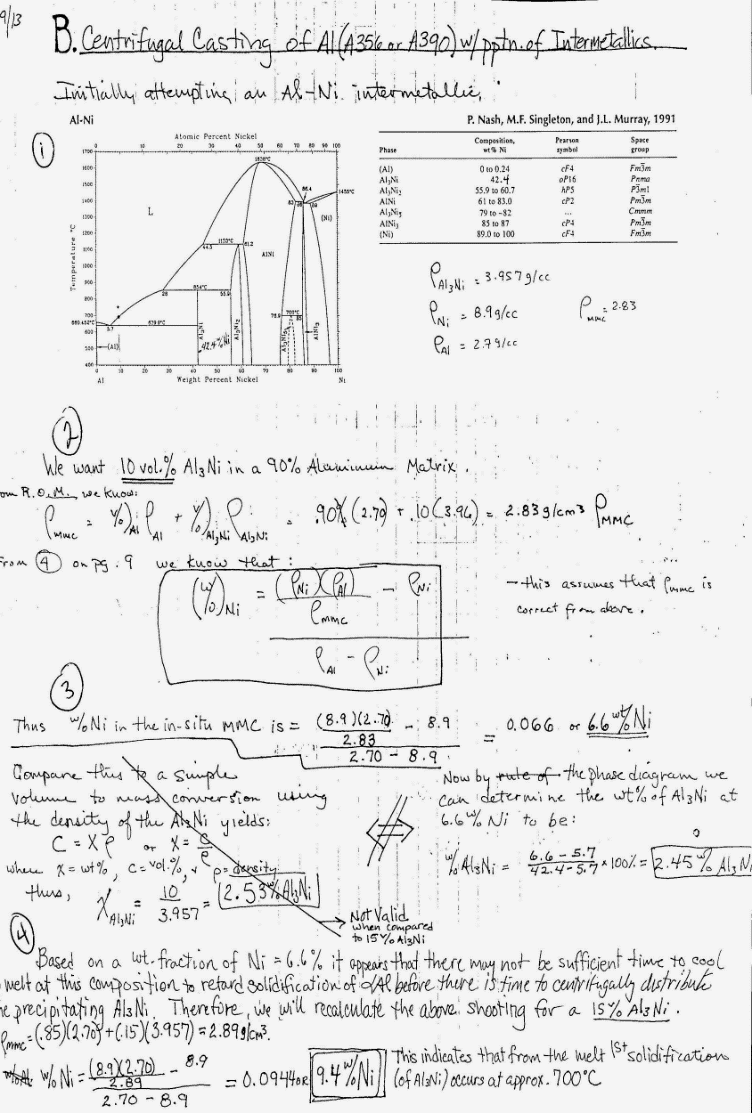 9/13
B. Centrifugal Casting of Al (A356 or A390) w/ pptn. of Intermetallics.
Initially attempting an Al-Ni intermetallic,
1
Al-Ni
P. Nash, M.F. Singleton, and J.L. Murray, 1991
Atomic Percent Nickel
Phase Composition, wt% Ni Pearson symbol Space group
(Al) 0 to 0.24 cF4 Fm3̄m
Al₃Ni 42.4 oP16 Pnma
Al₃Ni₂ 55.9 to 60.7 hP5 P3̄m1
AlNi 61 to 83.0 cP2 Pm3̄m
Al₃Ni₅ 79 to ~82 ... Cmmm
AlNi₃ 85 to 87 cP4 Pm3̄m
(Ni) 89.0 to 100 cF4 Fm3̄m
Temperature °C
L
AlNi
(Ni)
(Al)
Al₃Ni
42.4% Ni
Al₃Ni₂
Al₃Ni₅
AlNi₃
1638°C
1455°C
1133°C
854°C
700°C
639.9°C
660.452°C
Al Weight Percent Nickel Ni
ρ Al₃Ni = 3.957 g/cc
ρ Ni = 8.9 g/cc ρ mmc = 2.83
ρ Al = 2.7 g/cc
2
We want 10 vol.% Al₃Ni in a 90% Aluminum Matrix.
R.O.M. we know:
ρ mmc = v/o)Al ρ Al + v/o)Al₃Ni ρ Al₃Ni = .90% (2.70) + .10 (3.96) = 2.83 g/cm³ ρ MMC
From 4 on pg. 9 we know that:
(w/o)Ni = ((ρNi)(ρAl) / ρmmc − ρNi) / (ρAl − ρNi)
- this assumes that ρmmc is
correct from above.
3
Thus w/o Ni in the in-situ MMC is = ((8.9)(2.70) / 2.83 − 8.9) / (2.70 − 8.9) = 0.066 or 6.6 wt% Ni
Compare this to a simple
volume to mass conversion using
the density of the Al₃Ni yields:
C = Xρ or X = C/ρ
where x = wt%, c = vol.%, + ρ = density
thus,
X Al₃Ni = 10 / 3.957 = 2.53% Al₃Ni
Not Valid
when compared
to 15 v/o Al₃Ni
Now by rule of the phase diagram we
can determine the wt% of Al₃Ni at
6.6 w/o Ni to be:
w/o Al₃Ni = (6.6 − 5.7) / (42.4 − 5.7) × 100% = 2.45 % Al₃Ni
4
Based on a wt. fraction of Ni = 6.6% it appears that there may not be sufficient time to cool
melt at this composition to retard solidification of αAl before there is time to centrifugally distribute
precipitating Al₃Ni. Therefore, we will recalculate the above shooting for a 15% Al₃Ni.
ρmmc = (.85)(2.70) + (.15)(3.957) = 2.89 g/cm³.
w/o Ni = ((8.9)(2.70) / 2.89 − 8.9) / (2.70 − 8.9) = 0.0944 OR 9.4 w/o Ni
This indicates that from the melt 1st solidification
(of Al₃Ni) occurs at approx. 700°C